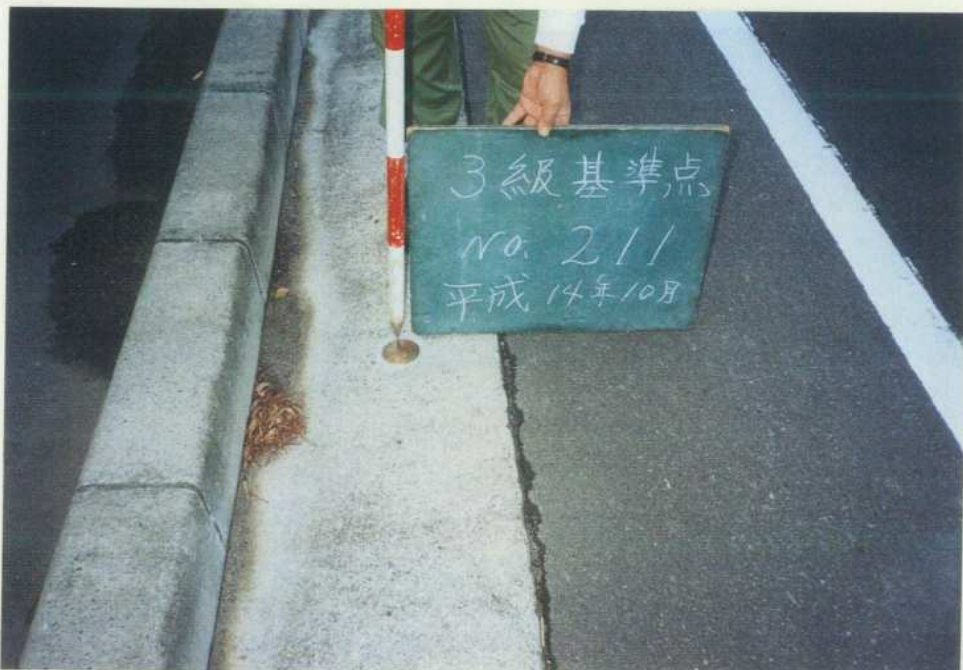 3級基準点
No. 211
平成14年10月